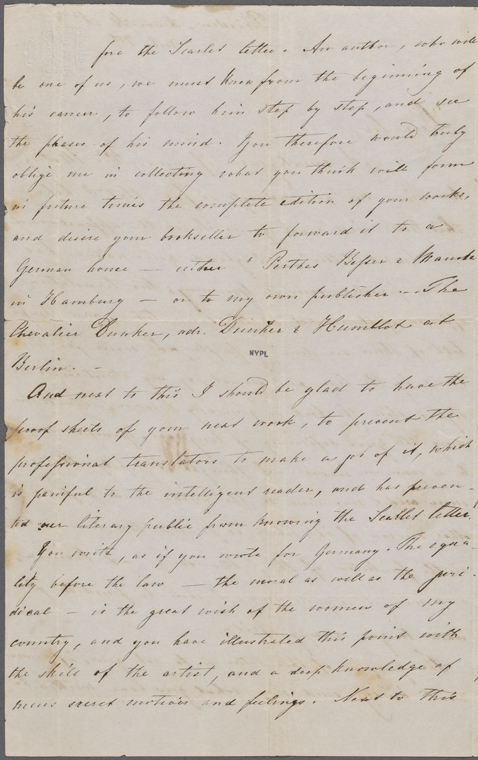 fore the Scarlet letter. An author, who will
be one of us, we must know from the beginning of
his career, to follow him step by step, and see
the phases of his mind. You therefore would truly
oblige me in collecting what you think will form
in future times the complete edition of your works,
and desire your bookseller to forward it to a
German house — either Perthes Besser & Mauke
in Hamburg — or to my own publisher — The
Chevalier Dunker, adr. Dunker & Humblot at
Berlin. —
NYPL
And next to this I should be glad to have the
proof sheets of your next work, to prevent the
professional translators to make a job of it, which
is painful to the intelligent reader, and has preven-
ted our literary public from knowing the Scarlet letter.
You write, as if you wrote for Germany. The equa-
lity before the law — the moral as well as the juri-
dical — is the great wish of the women of my
country, and you have illustrated this point with
the skill of the artist, and a deep knowledge of
mens secret motives and feelings. Next to this